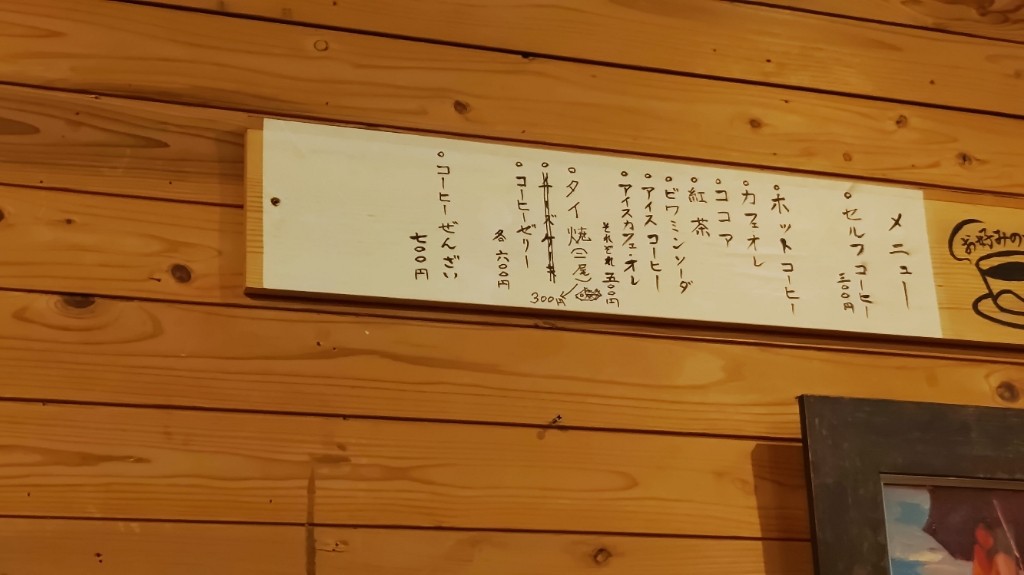 お好みの
メニュー
。セルフコーヒー
三〇〇円
。ホットコーヒー
。カフェオレ
。ココア
。紅茶
。ビワミンソーダ
。アイスコーヒー
。アイスカフェ・オレ
それぞれ 五〇〇円
。タイ焼(二尾)
300円
。コーヒーゼリー
各 六〇〇円
。コーヒーぜんざい
七〇〇円